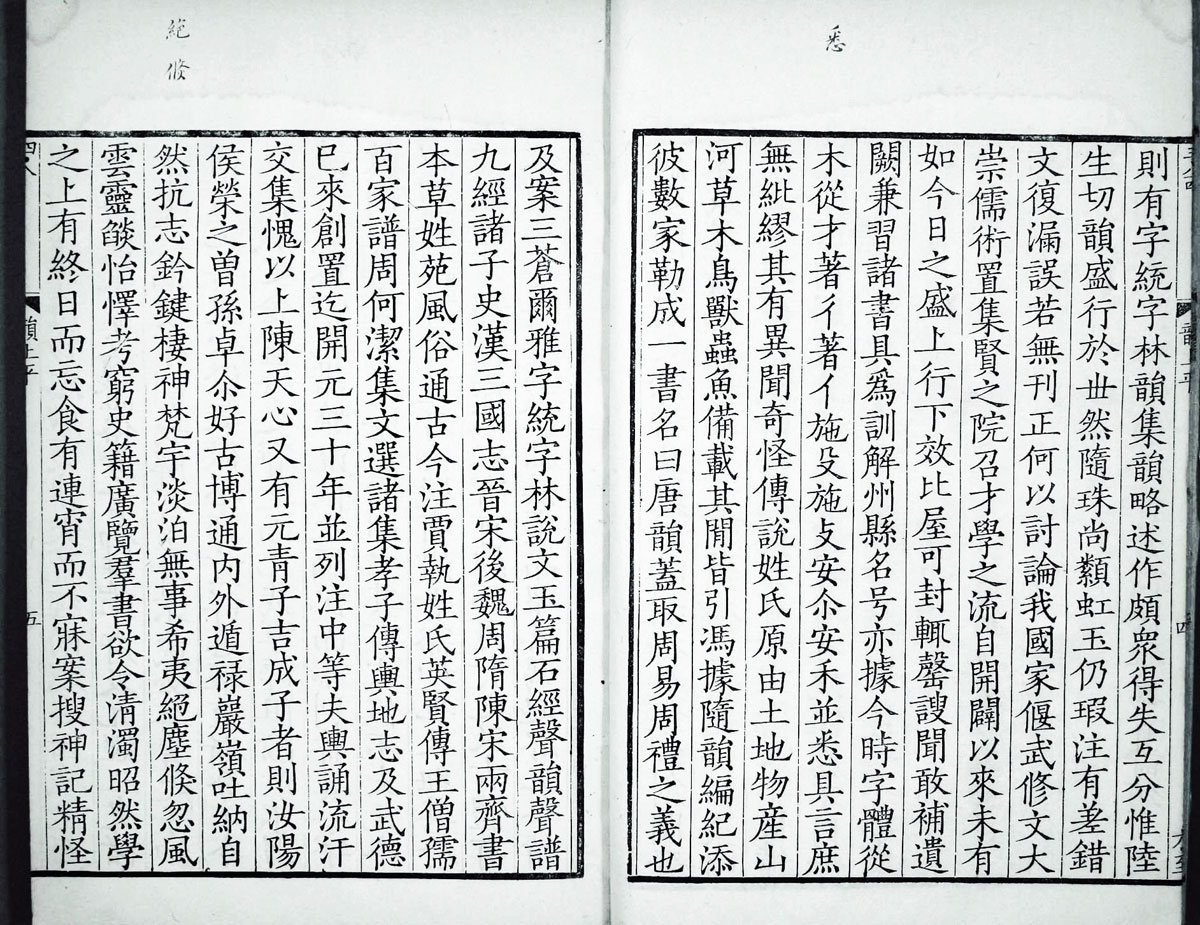 悉
則有字統字林韻集韻略述作頗衆得失互分惟陸
生切韻盛行於世然隨珠尚纇虹玉仍瑕注有差錯
文復漏誤若無刊正何以討論我國家偃武修文大
崇儒術置集賢之院召才學之流自開闢以來未有
如今日之盛上行下效比屋可封輒罄謏聞敢補遺
闕兼習諸書具爲訓解州縣名号亦據今時字體從
木從才著彳著亻施殳施攴安尒安禾並悉具言庶
無紕繆其有異聞奇怪傳說姓氏原由土地物産山
河草木鳥獸蟲魚備載其閒皆引馮據隨韻編紀添
彼數家勒成一書名曰唐韻蓋取周易周禮之義也
四
絕
倏
及案三蒼爾雅字統字林說文玉篇石經聲韻聲譜
九經諸子史漢三國志晉宋後魏周隋陳宋兩齊書
本草姓苑風俗通古今注賈執姓氏英賢傳王僧孺
百家譜周何潔集文選諸集孝子傳輿地志及武德
已來創置迄開元三十年並列注中等夫輿誦流汗
交集愧以上陳天心又有元青子吉成子者則汝陽
侯榮之曽孫卓尒好古博通內外遁禄巖嶺吐納自
然抗志鈐鍵棲神梵宇淡泊無事希夷絕塵倏忽風
雲靈燄怡懌考窮史籍廣覽羣書欲令清濁昭然學
之上有終日而忘食有連宵而不寐案搜神記精怪
五